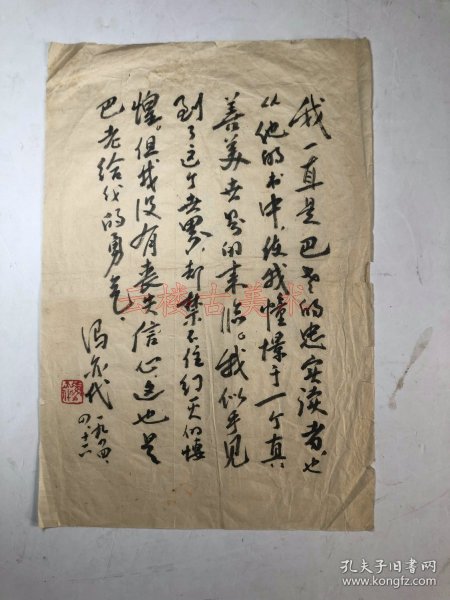 我一直是巴老的忠实读者,也
从他的书中,使我憧憬于一个真
善美世界的来临。我似乎见
到了这个世界,却禁不住幻灭的悽
惶。但我没有丧失信心,这也是
巴老给我的勇气。
冯亦代
一九八四、
四、十六
楼古美术
孔夫子旧书网
www.kongfz.com